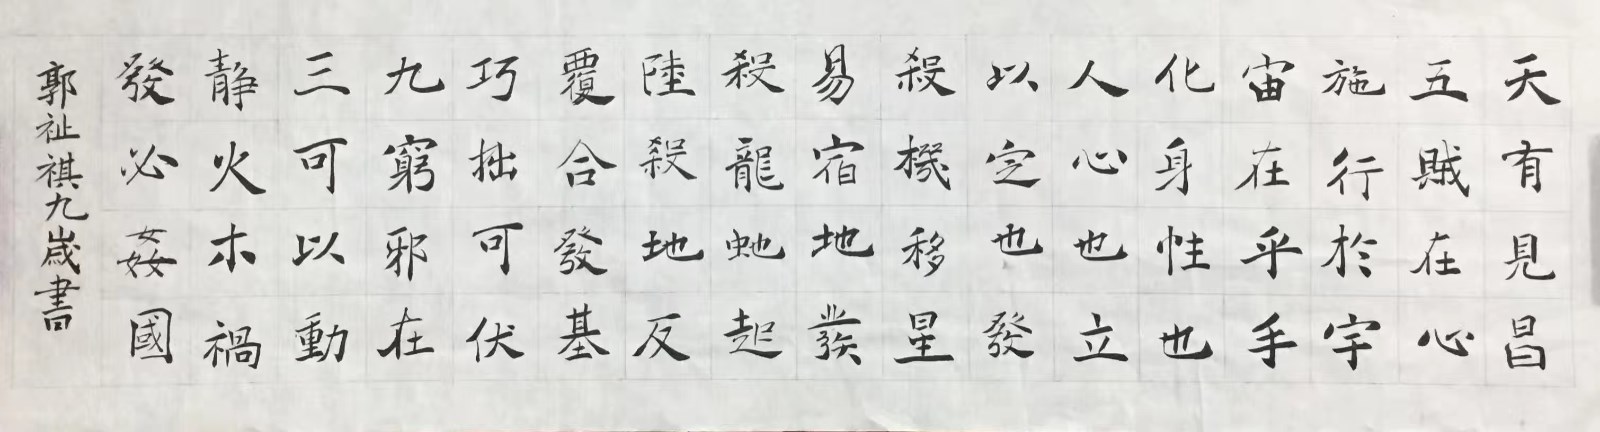 天有見昌
五賊在心
施行於宇
宙在乎手
化身性也
人心也立
以定也發
殺機移星
易宿地發
殺龍虵起
陸殺地反
覆合發基
巧拙可伏
九竅邪在
三可以動
静火木禍
發必姦國
郭祉祺九歲書